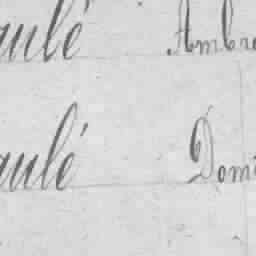 aulé Ambro
aulé Domi